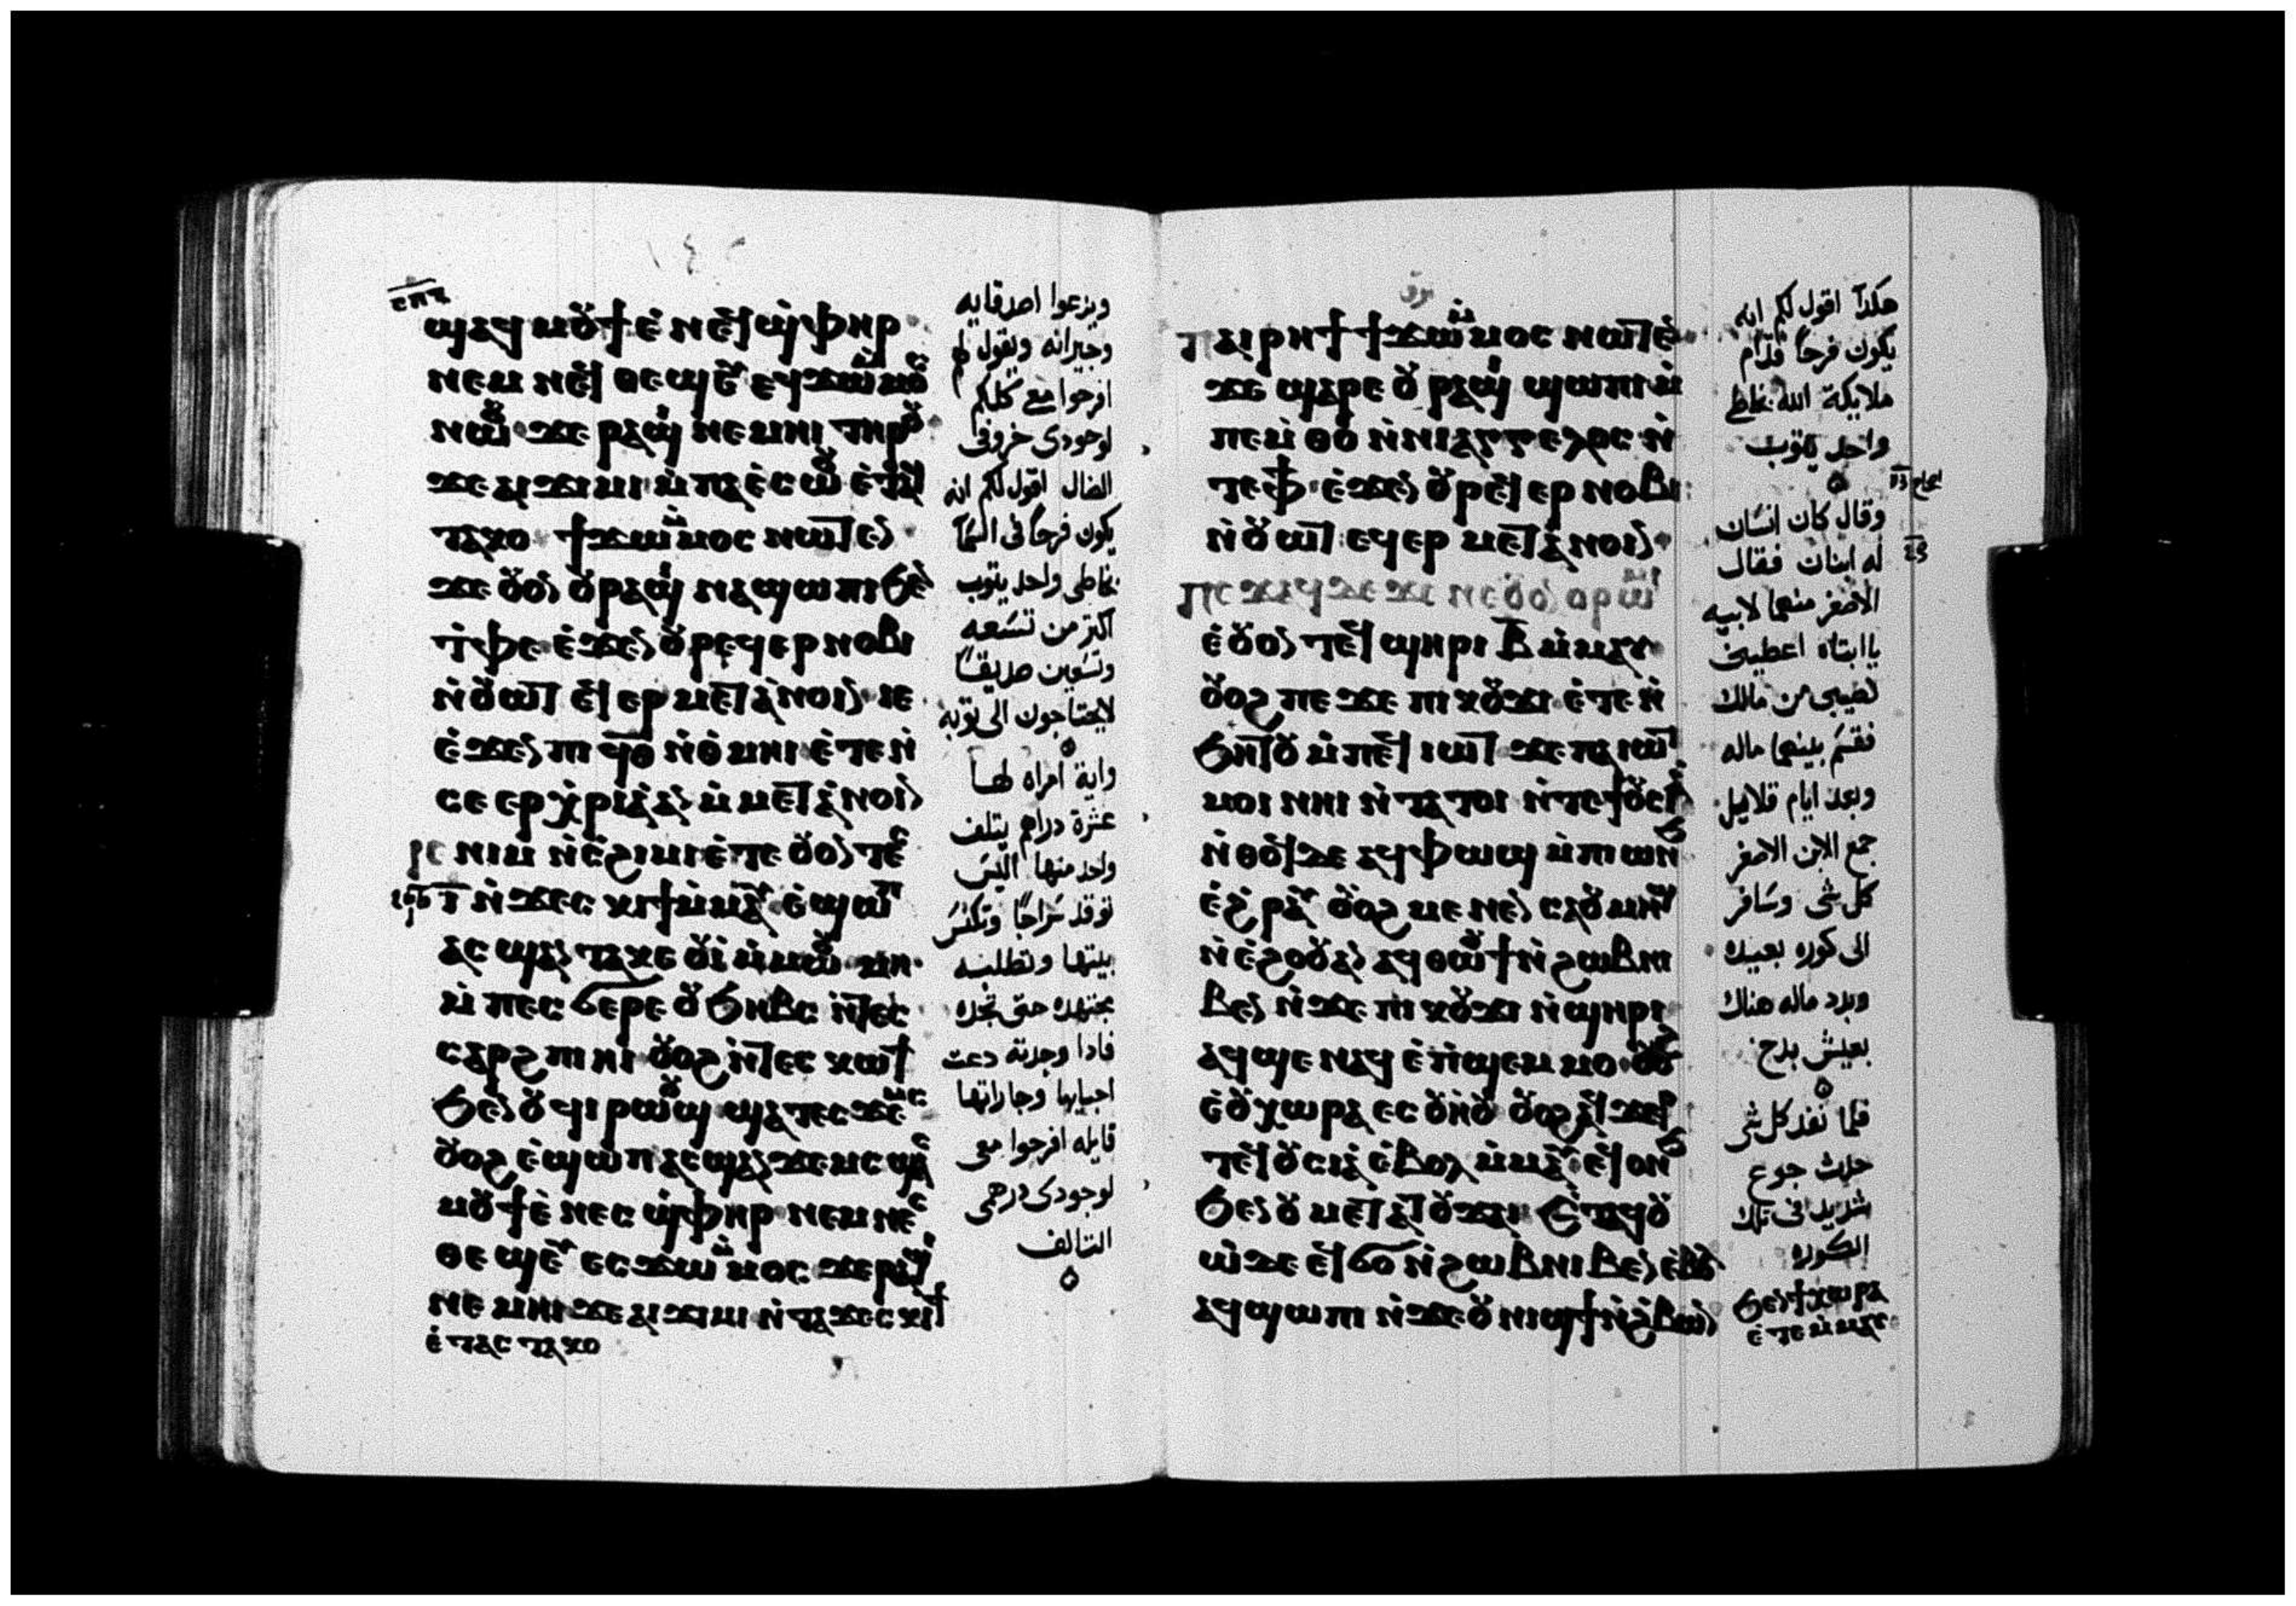 ⲥⲡⲋ
ϣⲁϥⲙⲟⲩϯ ⲉ̀ ⲛⲉϥϣ̀ⲫⲏⲣ
ⲛⲉⲙ ⲛⲉϥ ⲑⲉϣⲉⲩ ⲉϥϫⲱⲙ̀ⲙⲟⲥ
ⲛⲱⲟⲩ ϫⲉ ⲣⲁϣⲓ ⲛⲉⲙⲏⲓ ⲧⲏⲣⲟⲩ
ϫⲉ ⲁⲓϫⲓⲙⲓ ⲙ̀ⲡⲁⲉ̀ⲥⲱⲟⲩ ⲉ̀ⲧⲁϥ
ⲧⲁⲕⲟ ϯϫⲱⲙ̀ⲙⲟⲥ ⲛⲱⲧⲉⲛ
ϫⲉ ⲟⲩⲟⲛ ⲟⲩⲣⲁϣⲓ ⲛⲁϣⲱⲡⲓ ϧⲉⲛ
ⲧ̀ⲫⲉ ⲉ̀ϫⲉⲛ ⲟⲩⲣⲉϥⲉⲣⲛⲟⲃⲓ
ⲛ̀ⲟⲩⲱⲧ ⲉϥⲉⲣⲙⲉⲧⲁⲛⲟⲓⲛ ⲓⲉ
ⲉ̀ϫⲉⲛ ⲡⲓ ϥⲑ ⲛ̀ⲑ̀ⲙⲏⲓ ⲉ̀ⲧⲉⲛ̀
ⲥⲉ ⲉⲣⲭ̀ⲣⲓⲁ ⲁⲛ ⲙ̀ⲙⲉⲧⲁⲛⲟⲓⲁ
ⲓⲉ ⲛⲓⲙ ⲛ̀ⲥ̀ϩⲓⲙⲓ ⲉ̀ⲧⲉ ⲟⲩⲟⲛ ⲧⲉⲥ
ⲓ ⲛ̀ϫⲉⲥⲕⲓϯ ⲙ̀ⲙⲁⲩ ⲉ̀ϣⲱⲡ
ⲁⲥϣⲁⲛⲧⲁⲕⲉ ⲟⲩⲓ̀ ⲙ̀ⲙⲱⲟⲩ ⲙⲏ
ⲙ̀ⲡⲉⲥϭⲉⲣⲉ ⲟⲩϧⲏⲃⲥ ⲛ̀ⲧⲉⲥ
ⲥⲁⲣϩ ⲡⲓⲏⲓ ⲟⲩⲟϩ ⲛ̀ⲧⲉⲥⲕⲱϯ
ϧⲉⲛ ⲟⲩϥⲓⲣⲱⲟⲩϣ ϣⲁⲧⲉⲥϫⲉⲙⲥ
ⲟⲩⲟϩ ⲉ̀ϣⲱⲡ ⲁⲥϣⲁⲛϫⲉⲙⲥ ϣⲁⲥ
ⲙⲟⲩϯ ⲉ̀ⲛⲉⲥϣ̀ⲫⲏⲣ ⲛⲉⲙ ⲛⲉⲥ
ⲑⲉϣⲉⲩ ⲉⲥϫⲱⲙ̀ⲙⲟⲥ ϫⲉ ⲣⲁϣⲓ
ⲛⲉⲙⲏⲓ ϫⲉ ⲁⲓϫⲓⲙⲓ ⲛ̀ⲧⲁϫⲉⲥⲕⲓϯ
ⲉ̀ⲧⲁⲥⲧⲁⲕⲟ
ويدعوا اصدقايه
وجيرانه ويقول لهم
افرحوا معي كلكم
لوجودى خروفى
الضال اقول لكم انه
يكون فرحاً فى السما
بخاطى واحد يتوب
اكتر من تسعه
وتسعين صديقاً
لايحتاجون الى توبه
واية امراه لها
عشرة دراهم يتلف
واحد منها اليس
توقد سراجاً وتكنس
بيتها وتطلبه
مجتهده حتى تجده
فادا وجدته دعت
احبايها وجاراتها
قايله افرحوا معى
لوجودى درهمى
التالف
ⲡⲁⲓⲣⲏϯ ϯϫⲱⲙ̀ⲙⲟⲥ ⲛⲱⲧⲉⲛ
ϫⲉ ϣⲁⲣⲉ ⲟⲩⲣⲁϣⲓ ϣⲱⲡⲓ ⲙ̀
ⲡⲉⲙ̀ⲑⲟ ⲛ̀ⲛⲓⲁⲅⲅⲉⲗⲟⲥ ⲛ̀
ⲧⲉ ⲫϯ ⲉ̀ϫⲉⲛ ⲟⲩⲣⲉϥⲉⲣⲛⲟⲃⲓ
ⲛ̀ⲟⲩⲱⲧ ⲉϥⲉⲣⲙⲉⲧⲁⲛⲟⲓⲛ
ⲡⲉϫⲁϥ ϫⲉ ⲛⲉⲟⲩⲟⲛ ⲟⲩⲣⲱⲙⲓ
ⲉ̀ⲟⲩⲟⲛ ⲧⲉϥ ϣⲏⲣⲓ ⲃ̄ ⲙ̀ⲙⲁⲩ
ⲟⲩⲟϩ ⲡⲉϫⲉ ⲡⲓⲕⲟⲩϫⲓ ⲉ̀ⲧⲉⲛ̀
ϧⲏⲧⲟⲩ ⲙ̀ⲡⲉϥⲓⲱⲧ ϫⲉ ⲡⲁⲓⲱⲧ
ⲙⲟⲓ ⲛⲏⲓ ⲛ̀ⲧⲁⲧⲟⲓ ⲛ̀ⲧⲉϯⲟⲩⲥⲓⲁ
ⲛ̀ⲑⲟϥ ⲇⲉ ⲁϥⲫⲱϣ ⲙ̀ⲡⲓⲱⲛϧ
ⲉ̀ϩⲣⲁⲩ ⲟⲩⲟϩ ⲙⲉⲛⲉⲛⲥⲁ ⲟⲩⲙⲏϣ
ⲛ̀ⲉ̀ϩⲟⲟⲩ ⲁⲛ ⲁϥⲑⲱⲟⲩϯ ⲛ̀ϩⲱⲃ ⲛⲓ
ⲃⲉⲛ ⲛ̀ϫⲉ ⲡⲓⲕⲟⲩϫⲓ ⲛ̀ϣⲏⲣⲓ
ⲁϥϣⲉ ⲛⲁϥ ⲉ̀ⲡ̀ϣⲉⲙⲙⲟ ⲟⲩⲟϩ
ⲉ̀ⲟⲩⲭⲱⲣⲁ ⲉⲥⲟⲩⲏⲟⲩ ⲟⲩⲟϩ ⲁϥϫⲉⲣ
ⲧⲉϥⲟⲩⲥⲓⲁ ⲉ̀ⲃⲟⲗ ⲙ̀ⲙⲁⲩ ⲉϥⲟⲛϧ
ϧⲉⲛ ⲟⲩⲙⲉⲧⲁⲧⲟⲩϫⲁⲓ ⲉ̀ⲧⲁϥⲟⲩ
ⲱ̀ ⲇⲉ ⲉϥϭⲟ ⲛ̀ϩⲱⲃ ⲛⲓⲃⲉⲛ ⲉ̀ⲃⲟⲗ
ⲁϥϣⲱⲡⲓ ⲛ̀ϫⲉ ⲟⲩⲛⲓϣϯ ⲛ̀ϩ̀ⲃⲱⲛ
ϧⲉⲛ ϯⲭⲱⲣⲁ
ⲉ̀ⲧⲉ ⲙ̀ⲙⲁⲩ
هكدا اقول لكم انه
يكون فرحاً قدّام
ملايكة الله بخاطى
واحد يتوب
وقال كان انسان
له ابنان فقال
الاصغر منهما لابيه
ياابتاه اعطينى
نصيبى من مالك
فقسم بينهما ماله
وبعد ايام قلايل
جمع الابن الاصغر
كل شى وسافر
الى كوره بعيده
وبدد ماله هناك
بعيش بدخ
فلما نفد كل شى
حدث جوع
شديد فى تلك
الكوره